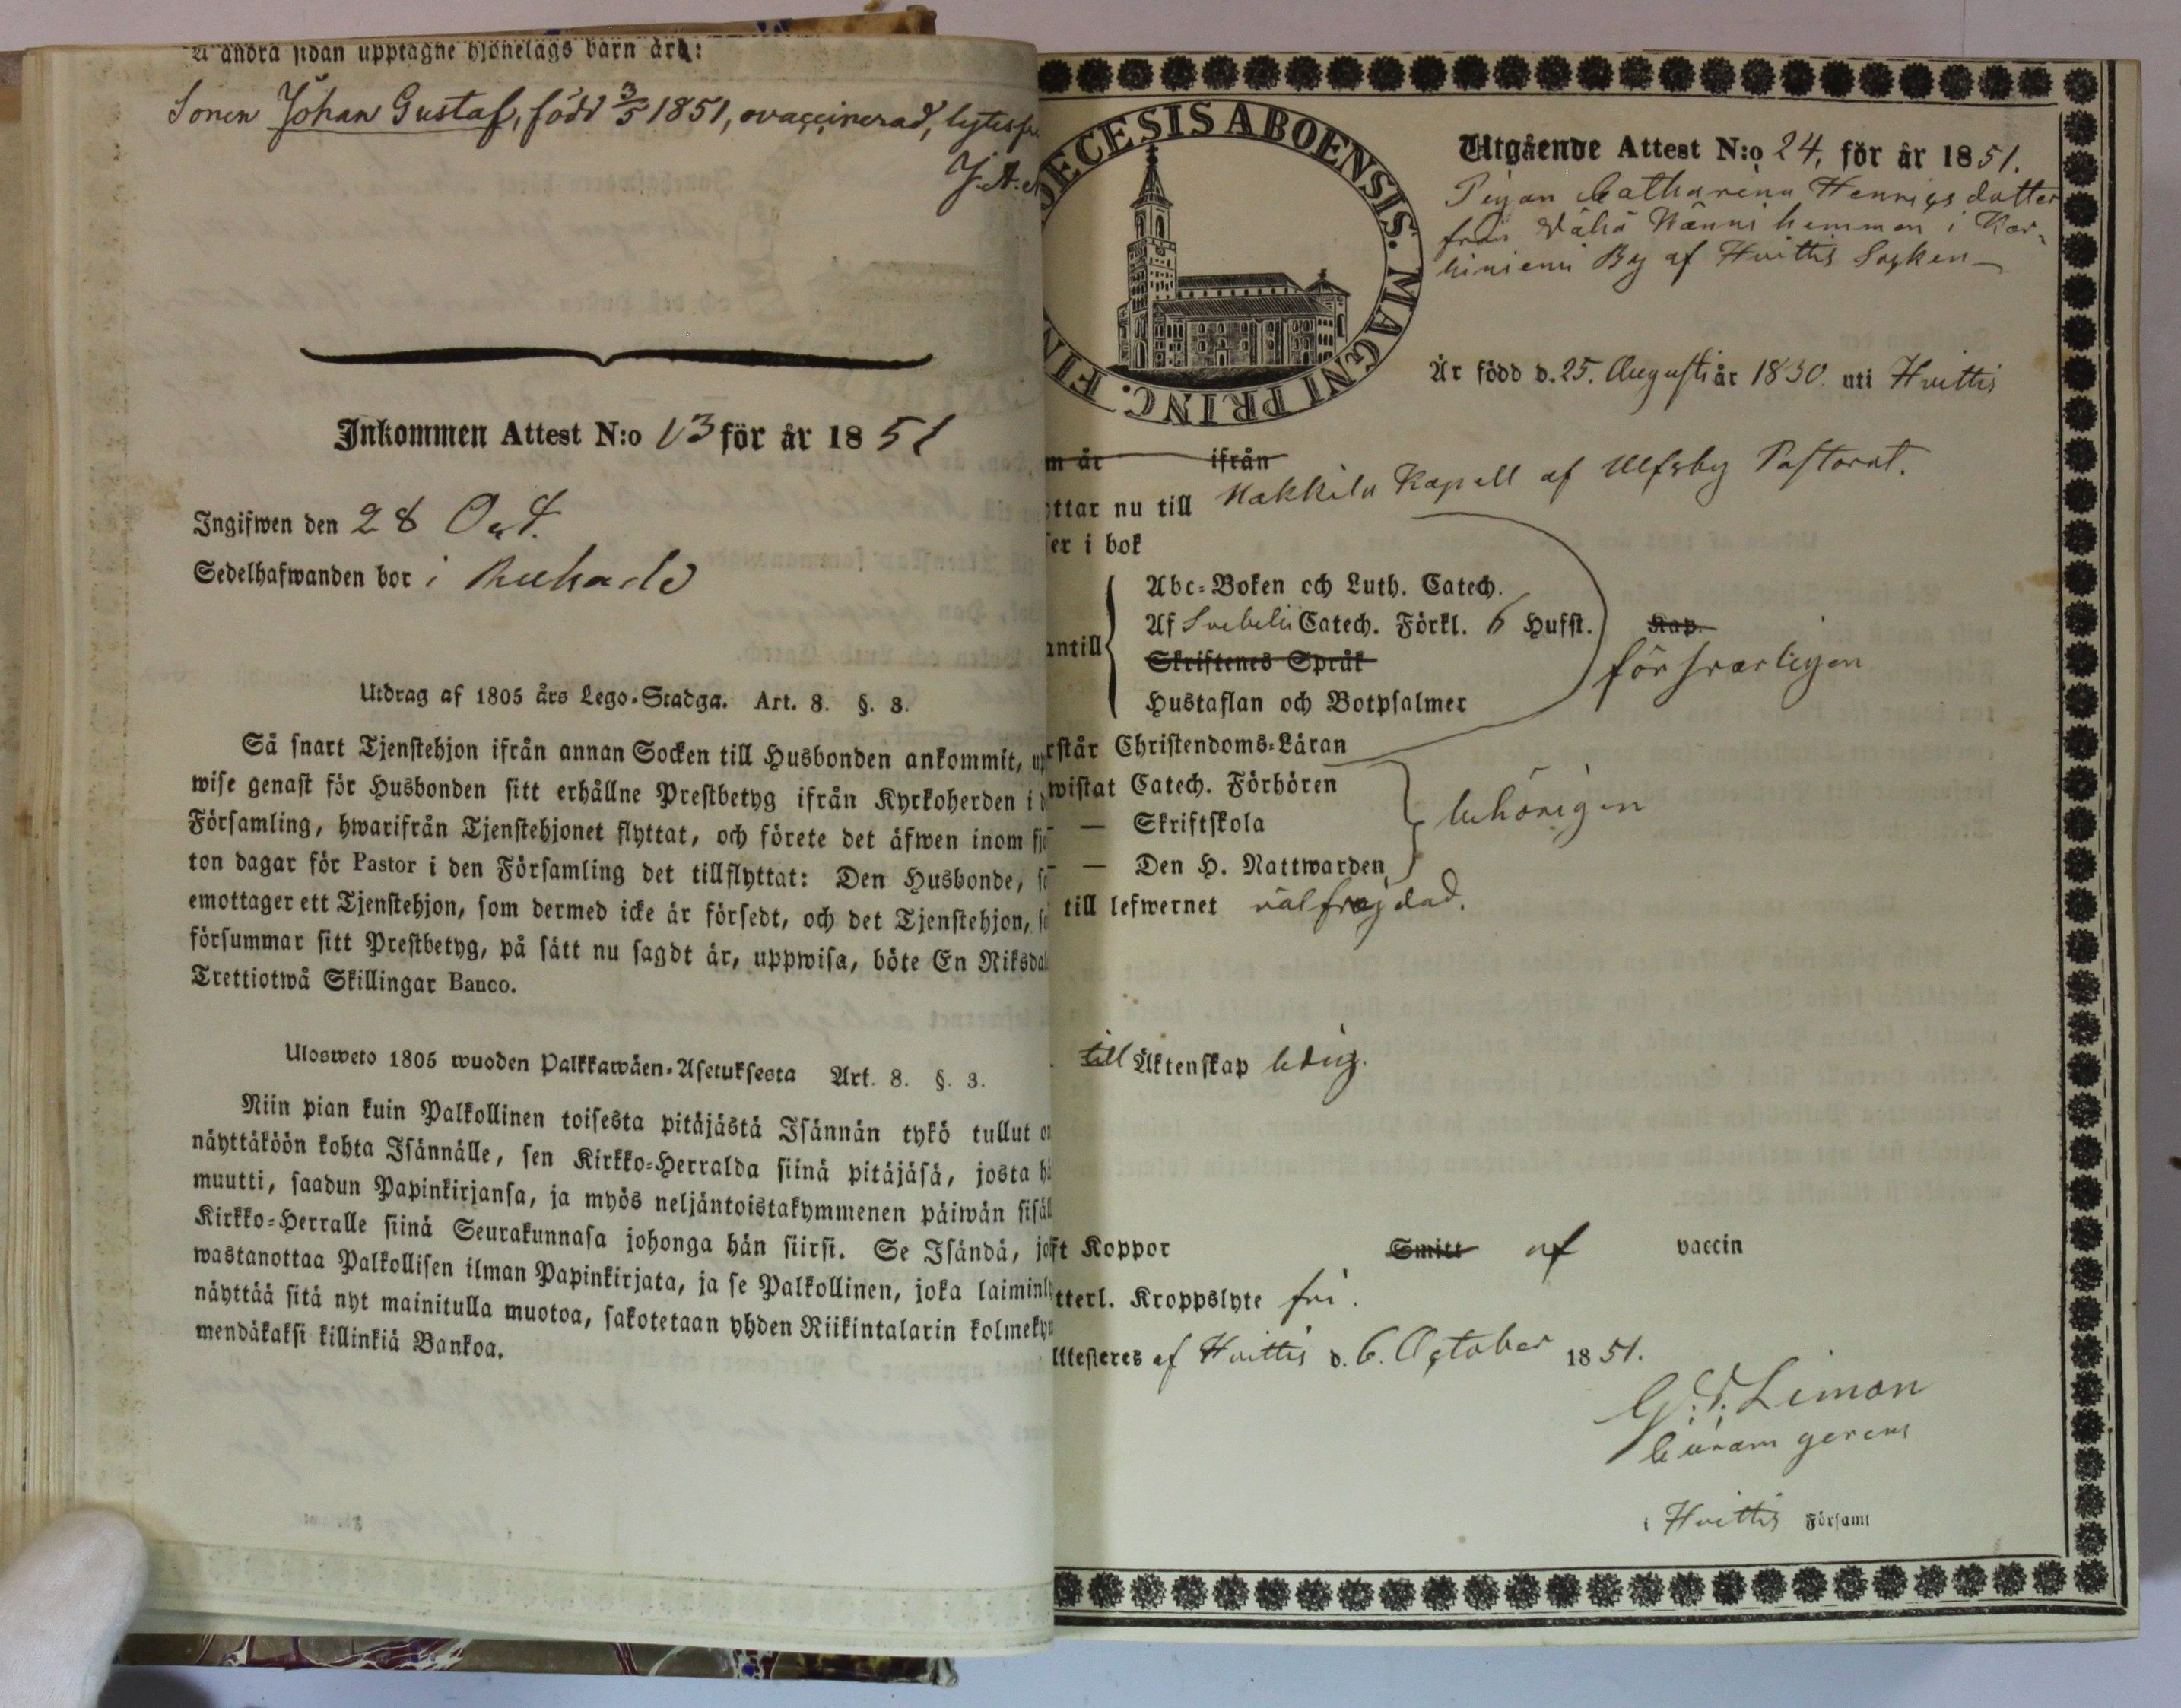 A andra sidan upptagne hjonelags barn äro:
Sonen Johan Gustaf, född 3/5 1851, ovaccinerad, lytesfr
J. A.
Inkommen Attest N:o 13 för år 1851
Ingifwen den 28 Oct.
Sedelhafwanden bor i
Utdrag af 1805 års Lego-Stadga. Art. 8. §. 3.
Så snart Tjenstehjon ifrån annan Socken till Husbonden ankommit, up
wise genast för Husbonden sitt erhållne Prestbetyg ifrån Kyrkoherden i d
Församling, hwarifrån Tjenstehjonet flyttat, och förete det äfwen inom fjo
ton dagar för Pastor i den Församling det tillflyttat: Den Husbonde, so
emottager ett Tjenstehjon, som dermed icke är försedt, och det Tjenstehjon, so
försummar sitt Prestbetyg, på sätt nu sagdt är, uppwisa, böte En Riksdal
Trettiotwå Skillingar Banco.
Ulosweto 1805 wuoden Palkkawäen-Asetuksesta Art. 8. §. 3.
Niin pian kuin Palkollinen toisesta pitäjästä Isännän tykö tullut on
näyttäköön kohta Isännälle, sen Kirkko-Herralda siinä pitäjäsä, josta hä
muutti, saadun Papinkirjansa, ja myös neljäntoistakymmenen päiwän sisäll
Kirkko-Herralle siinä Seurakunnasa johonga hän siirsi. Se Isändä, jo
wastanottaa Palkollisen ilman Papinkirjata, ja se Palkollinen, joka laiminly
näyttää sitä nyt mainitulla muotoa, sakotetaan yhden Riikintalarin kolmekym
mendäkaksi killinkiä Bankoa.
OECESIS ABOENSIS. MAGNI PRINC. FIN
Utgående Attest N:o 24, för år 1851.
Pigan Catharina Henricsdotter
från Vähä Nänni hemman i Kar-
hiniemi By af Hvittis Socken
Är född d. 25. Augusti år 1830 uti Hvittis
m är ifrån
ttar nu till Nakkila Kapell af Ulfsby Pastorat.
ser i bok
Abc-Boken och Luth. Catech.
Af Svebelii Catech. Förkl. 6 Hufst. Kap.
antill
Skriftenes Språk
försvarligen
Hustaflan och Botpsalmer
rstår Christendoms-Läran
wistat Catech. Förhören
— Skriftskola
behörigen
— Den H. Nattwarden
till lefwernet välfrägdad.
till Äktenskap ledig.
ft Koppor Smitt af vaccin
tterl. Kroppslyte fri.
ttesteres af Hvittis d. 6. October 1851.
G. F. Limon
Curam gerens
i Hvittis Församl